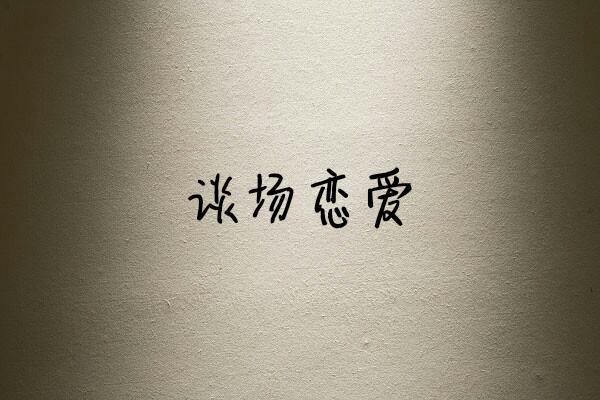 谈场恋爱